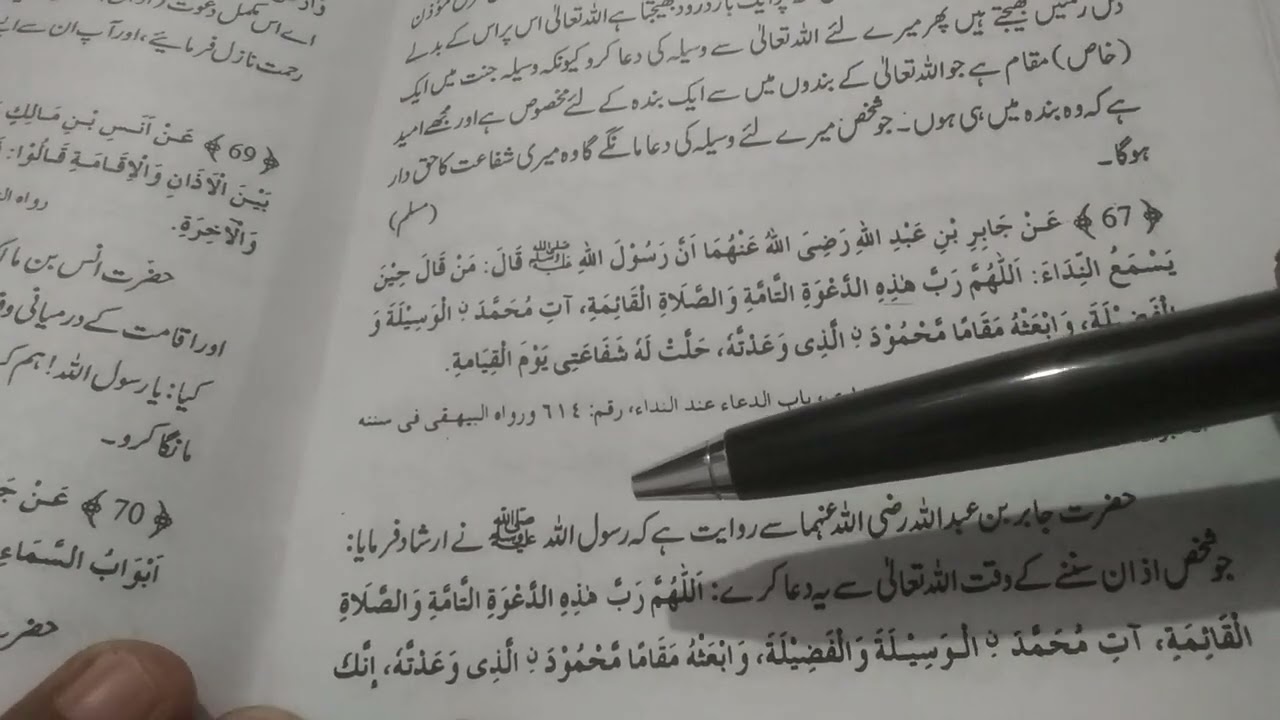 پر ایک بار درود بھیجتا ہے اللہ تعالیٰ اس پر اس کے بدلے
دس رحمتیں بھیجتے ہیں پھر میرے لئے اللہ تعالیٰ سے وسیلہ کی دعا کرو کیونکہ وسیلہ جنت میں ایک
(خاص) مقام ہے جو اللہ تعالیٰ کے بندوں میں سے ایک بندہ کے لئے مخصوص ہے اور مجھے امید
ہے کہ وہ بندہ میں ہی ہوں۔ جو شخص میرے لئے وسیلہ کی دعا مانگے گا وہ میری شفاعت کا حق دار
ہوگا۔
(مسلم)
﴿67﴾ عَنْ جَابِرِ بْنِ عَبْدِ اللهِ رَضِىَ اللهُ عَنْهُمَا اَنَّ رَسُوْلَ اللهِ ﷺ قَالَ: مَنْ قَالَ حِيْنَ
يَسْمَعُ النِّدَاءَ: اَللّٰهُمَّ رَبَّ هٰذِهِ الدَّعْوَةِ التَّامَّةِ وَالصَّلَاةِ الْقَائِمَةِ، آتِ مُحَمَّدَ نِ الْوَسِيْلَةَ وَ
الْفَضِيْلَةَ، وَابْعَثْهُ مَقَامًا مَّحْمُوْدَ نِ الَّذِى وَعَدْتَّهُ، حَلَّتْ لَهُ شَفَاعَتِى يَوْمَ الْقِيَامَةِ.
باب الدعاء عند النداء، رقم: ٦١٤ ورواه البيهقى فى سننه
حضرت جابر بن عبد اللہ رضی اللہ عنہما سے روایت ہے کہ رسول اللہ ﷺ نے ارشاد فرمایا:
جو شخص اذان سننے کے وقت اللہ تعالیٰ سے یہ دعا کرے: اَللّٰهُمَّ رَبَّ هٰذِهِ الدَّعْوَةِ التَّامَّةِ وَالصَّلَاةِ
الْقَائِمَةِ، آتِ مُحَمَّدَ نِ الْوَسِيْلَةَ وَالْفَضِيْلَةَ، وَابْعَثْهُ مَقَامًا مَّحْمُوْدَ نِ الَّذِى وَعَدْتَّهُ، اِنَّكَ
اے اس مکمل دعوت
رحمت نازل فرمائیے، اور آپ ان سے
﴿69﴾ عَنْ اَنَسِ بْنِ مَالِكٍ
بَيْنَ الْاَذَانِ وَالْاِقَامَةِ قَالُوْا:
رواه
وَالْآخِرَةِ.
حضرت انس بن
اور اقامت کے درمیانی
کیا: یا رسول اللہ! ہم
مانگا کرو۔
﴿70﴾ عَنْ
اَبْوَابُ السَّمَاءِ